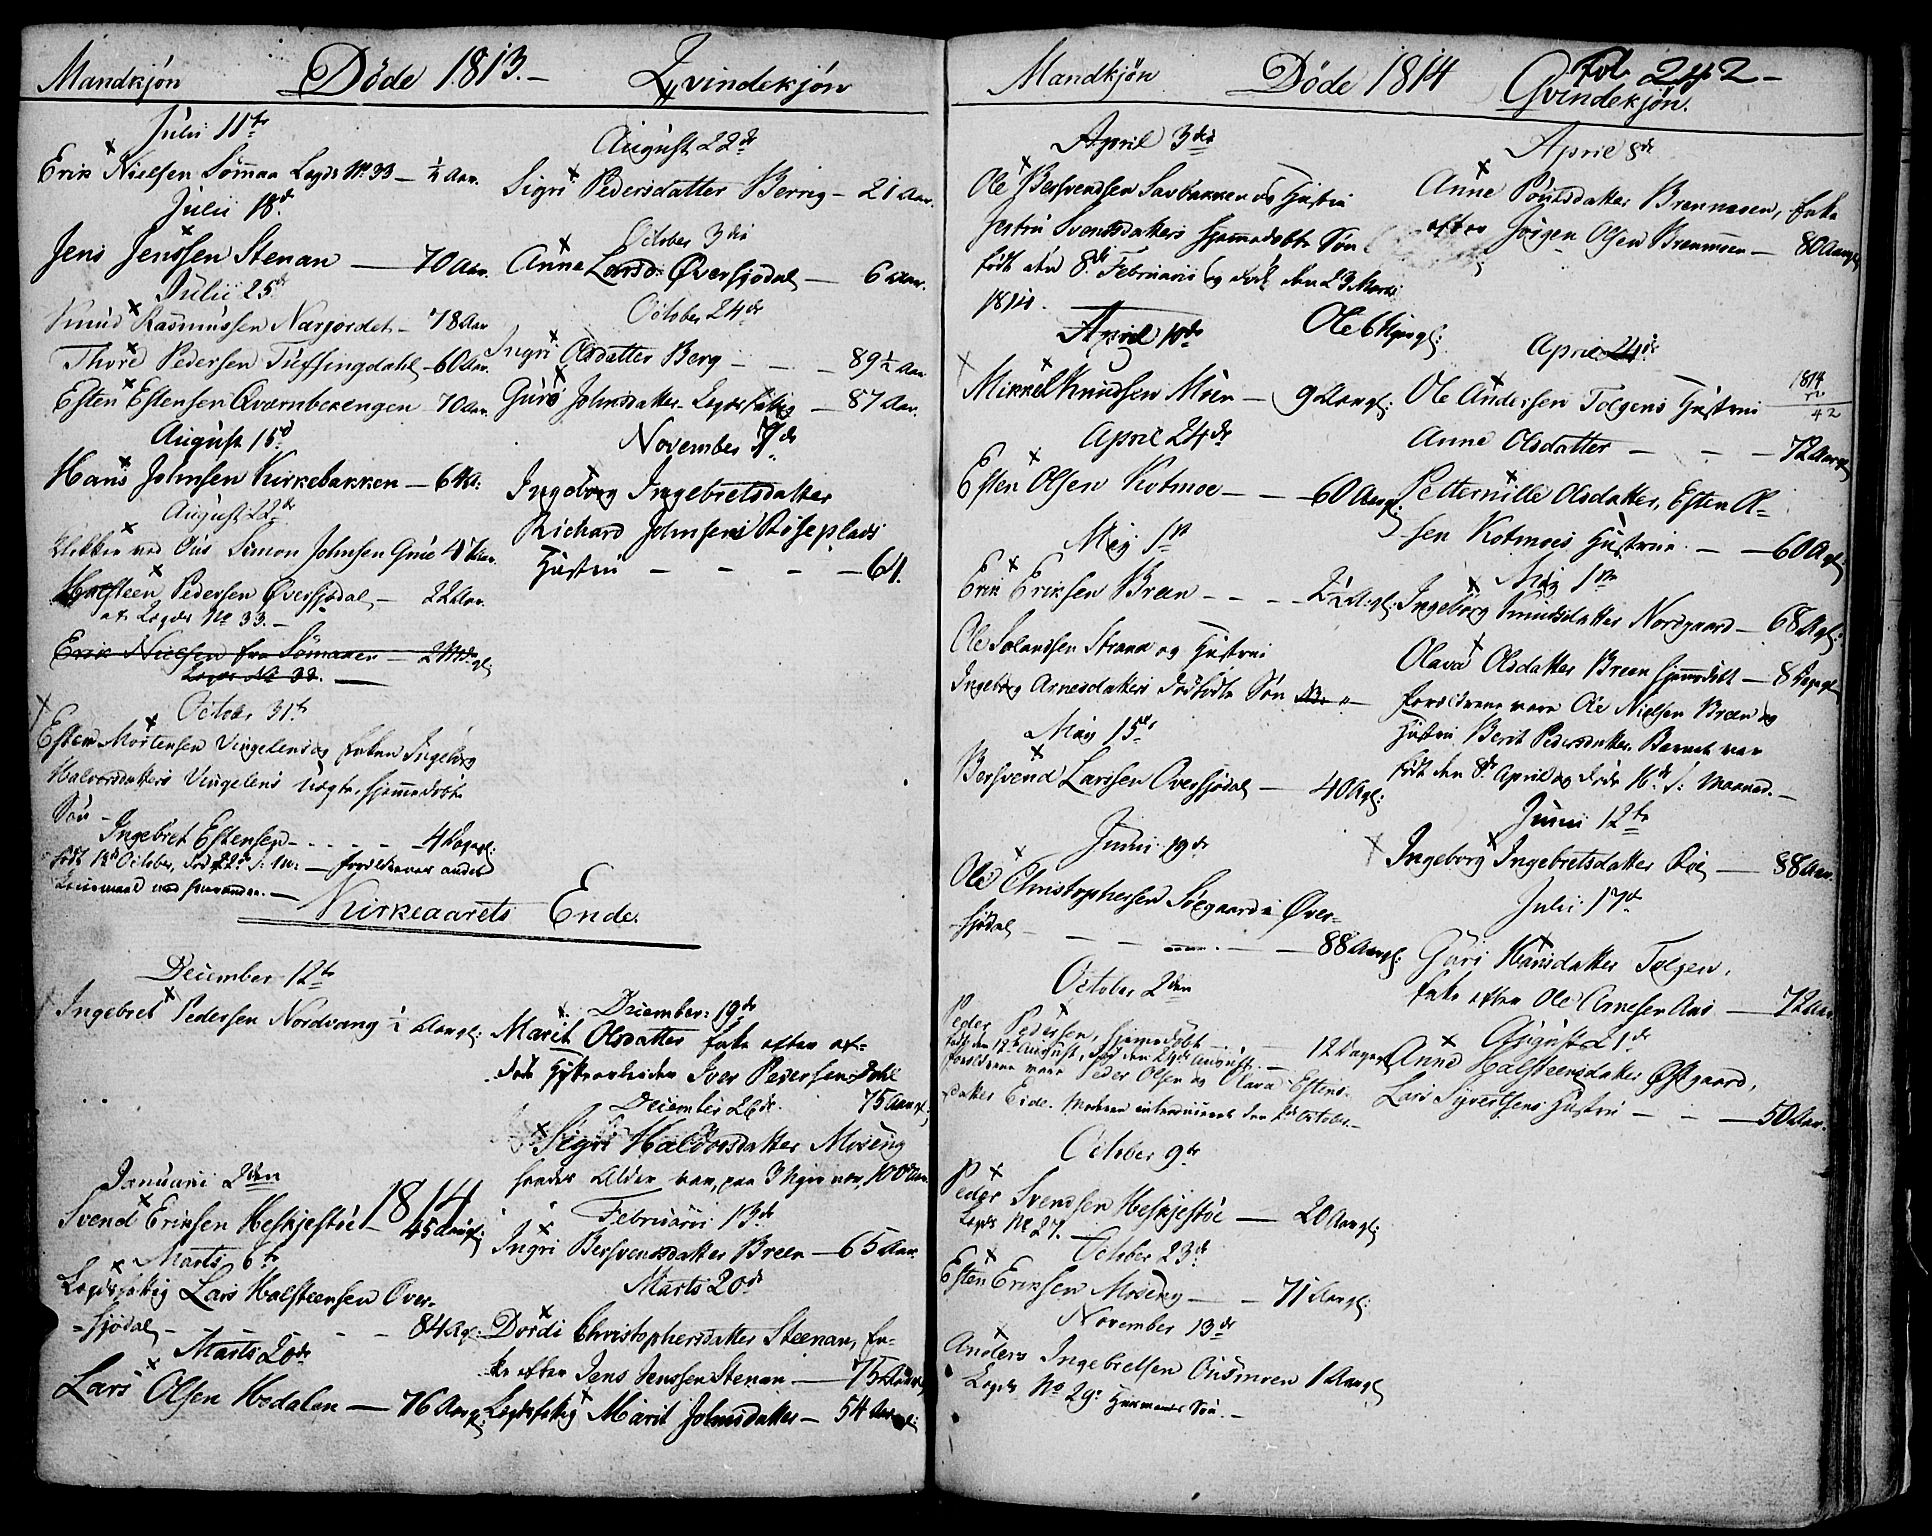 Mandkjön Döde 1813.- Qvindekjön
Julii 11te
Erik Nielsen Sömaa Lægds No 33 — ½ Aar.
Julii 18de
Jens Jenssen Stenan — 70 Aar.
Julii 25de
Knud Rasmussen Nærjordet - 78 Aar
Thore Pedersen - 60 Aar.
Esten Estensen Qværnbekengen - 70 Aar.
August 15de
Hans Johnsen Kirkebakken — 6 Aar:
August 22de
Simon Johnsen
Halsteen Pedersen Översjödal — 22 Aar.
af Lægds No 33. —
Erik Nielsen fra Sömaaen —
Lægds No 33. —
October 31te
Esten Mortensen Vingelens og Enken Ingeborg
Halvorsdatters Vingelens uægte hjemmedöbte
Sön -
Ingebret Estensen - - - - - 4 Dage gl:
födt 18de October, död 22de
Leiermaal med hverandre. —
Kirkeaarets Ende.
December 12te
Ingebret Pedersen Nordvang ½ Aar gl:
1814
Januarii 2den
Svend Eriksen Heskjestöe - 45 Aar gl:
Marts 6te
Lægdsfattig Lars Halsteensen Over-
-sjödal - - - - 84 A gl:
Marts 20de
Lars Olsen Hodalen — 76 Aar gl:
August 22de
Sigri Pedersdatter Berrig - 21 Aar.
October 3die
Anne Larsd: Översjödal — 6 Aar.
October 24de
Ingri Olsdatter Berg - - - 89 ½ Aar
Guro Johnsdatter Lægdsfattig — 87 Aar.
November 7de
Ingeborg Ingebretsdatter
Richard Johnsens Röseplads
Hustru - - - - — 61.
December 19de
Marit Olsdatter Enke efter af-
döde Hyttearbeider Iver Pedersen Dahl
75 Aar gl:
December 26de
Sigri Haldorsdatter Moseng
hendes Alder var, paa 3 Uger nær, 100 Aar
Februarii 13de
Ingri Bersvendsdatter Breen — 65 Aar.
Marts 20de
Dordi Christophersdatter Steenan, En-
ke efter Jens Jenssen Stenan — 75 Aar
Lægdsfattig Marit Johnsdatter — 54 Aar gl:
Mandkjön Döde 1814 Qvindekjön.
Fol. 242 -
April 3die
Ole Bersvendsen Savbakken og Hustru
Svendsdatters hjemmedöbte Sön
födt den 8de Februarii og död den 23 Marts
1814.
Ole 6 Uger gl:
April 10de
Mikkel Knudsen Moen — 9 Aar gl:
April 24de
Esten Olsen Kotmoe - - 60 Aar gl:
Maj 1ste
Erik Eriksen Breen - - - 2½ A gl:
Ole Solandsen Strand og Hustrui
Ingeborg Arnesdatters dödfödte Sön
Maij 15de
Bersvend Larssen Oversjödal — 40 A gl:
Junii 19de
Ole Christophersen Siögaard i Över-
-sjödal - - - — 88 Aar gl:
October 2den
Peder Pedersen, hjemmedöbt - - 12 Dage gl
födt den 18de August, död den 29de August. —
Forældrene vare Peder Olsen og Olava Estens-
datter Eide. Moderen introduceret den 2de October. —
October 9de
Peder Svendsen Heskjestöe — 20 Aar gl:
Lægds No 27. —
October 23de
Esten Eriksen Moseng — - 71 Aar gl:
November 13de
Anders Ingebrethsen Ousmoen 1 Aar gl
Lægds No 29: Huusmands Sön. -
April 8de
Anne Poulsdatter Brennmoen, Enke
efter Jörgen Olsen Brennmoen — 80 Aar gl:
April 24de
1814
72
42
Ole Andersen Tolgens Hustrui
Anne Olsdatter - - - 72 Aar gl
Petternille Olsdatter, Esten Ol-
sen Kotmoes Hustrue. - — 60 A gl
Maij 1ste
Ingeborg Knudsdatter Nordgaard — 68 A gl:
Olava Olsdatter Breen hjemmedöbt — 8 Dage gl
Forældrene vare Ole Nielsen Breen og
Hustru Berit Pedersdatter. Barnet var
födt den 8de April og döde 16de s: Maaned. —
Junii 12te
Ingeborg Ingebretsdatter Röe — 88 Aar.
Julii 17de
Guri Hansdatter Tolgen,
Enke efter Ole Arnesen Aas — 72 Aar
August 21de
Anne Halsteensdatter Östgaard,
Lars Sivertsens Hustru - - — 50 Aar.